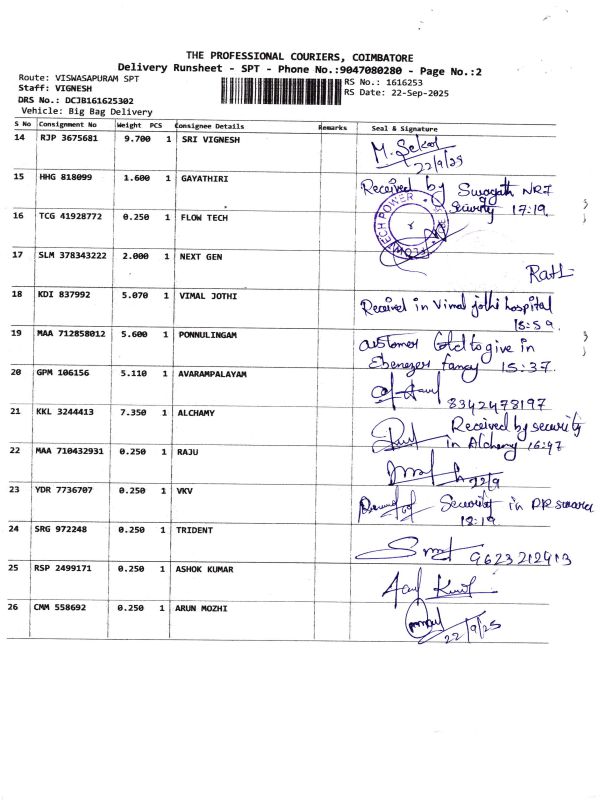 THE PROFESSIONAL COURIERS, COIMBATORE
Delivery Runsheet - SPT - Phone No.:9047080280 - Page No.:2
Route: VISWASAPURAM SPT
RS No.: 1616253
Staff: VIGNESH
RS Date: 22-Sep-2025
DRS No.: DCJB161625302
Vehicle: Big Bag Delivery
S No Consignment No Weight PCS Consignee Details Remarks Seal & Signature
14 RJP 3675681 9.700 1 SRI VIGNESH M. Sekar
22/9/25
15 HHG 818099 1.600 1 GAYATHIRI Received by Swagath NRI
Security 17:19
16 TCG 41928772 0.250 1 FLOW TECH
FLOWTECH POWER
17 SLM 378343222 2.000 1 NEXT GEN
18 KDI 837992 5.070 1 VIMAL JOTHI Received in Vimal jothi hospital
15:59.
19 MAA 712858012 5.600 1 PONNULINGAM customer told to give in
Ebenezer fancy 15:37.
20 GPM 106156 5.110 1 AVARAMPALAYAM
8342478197
21 KKL 3244413 7.350 1 ALCHAMY Received by security
in Alchemy
22 MAA 710432931 0.250 1 RAJU
22/9
23 YDR 7736707 0.250 1 VKV Security in PR
24 SRG 972248 0.250 1 TRIDENT
9623212913
25 RSP 2499171 0.250 1 ASHOK KUMAR
26 CMM 558692 0.250 1 ARUN MOZHI
22/9/25